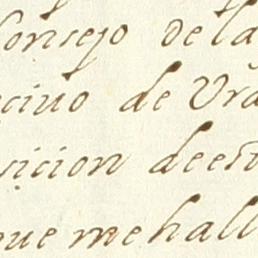 Consejo de la
ecivo de Vra
vicion de est
que me hall